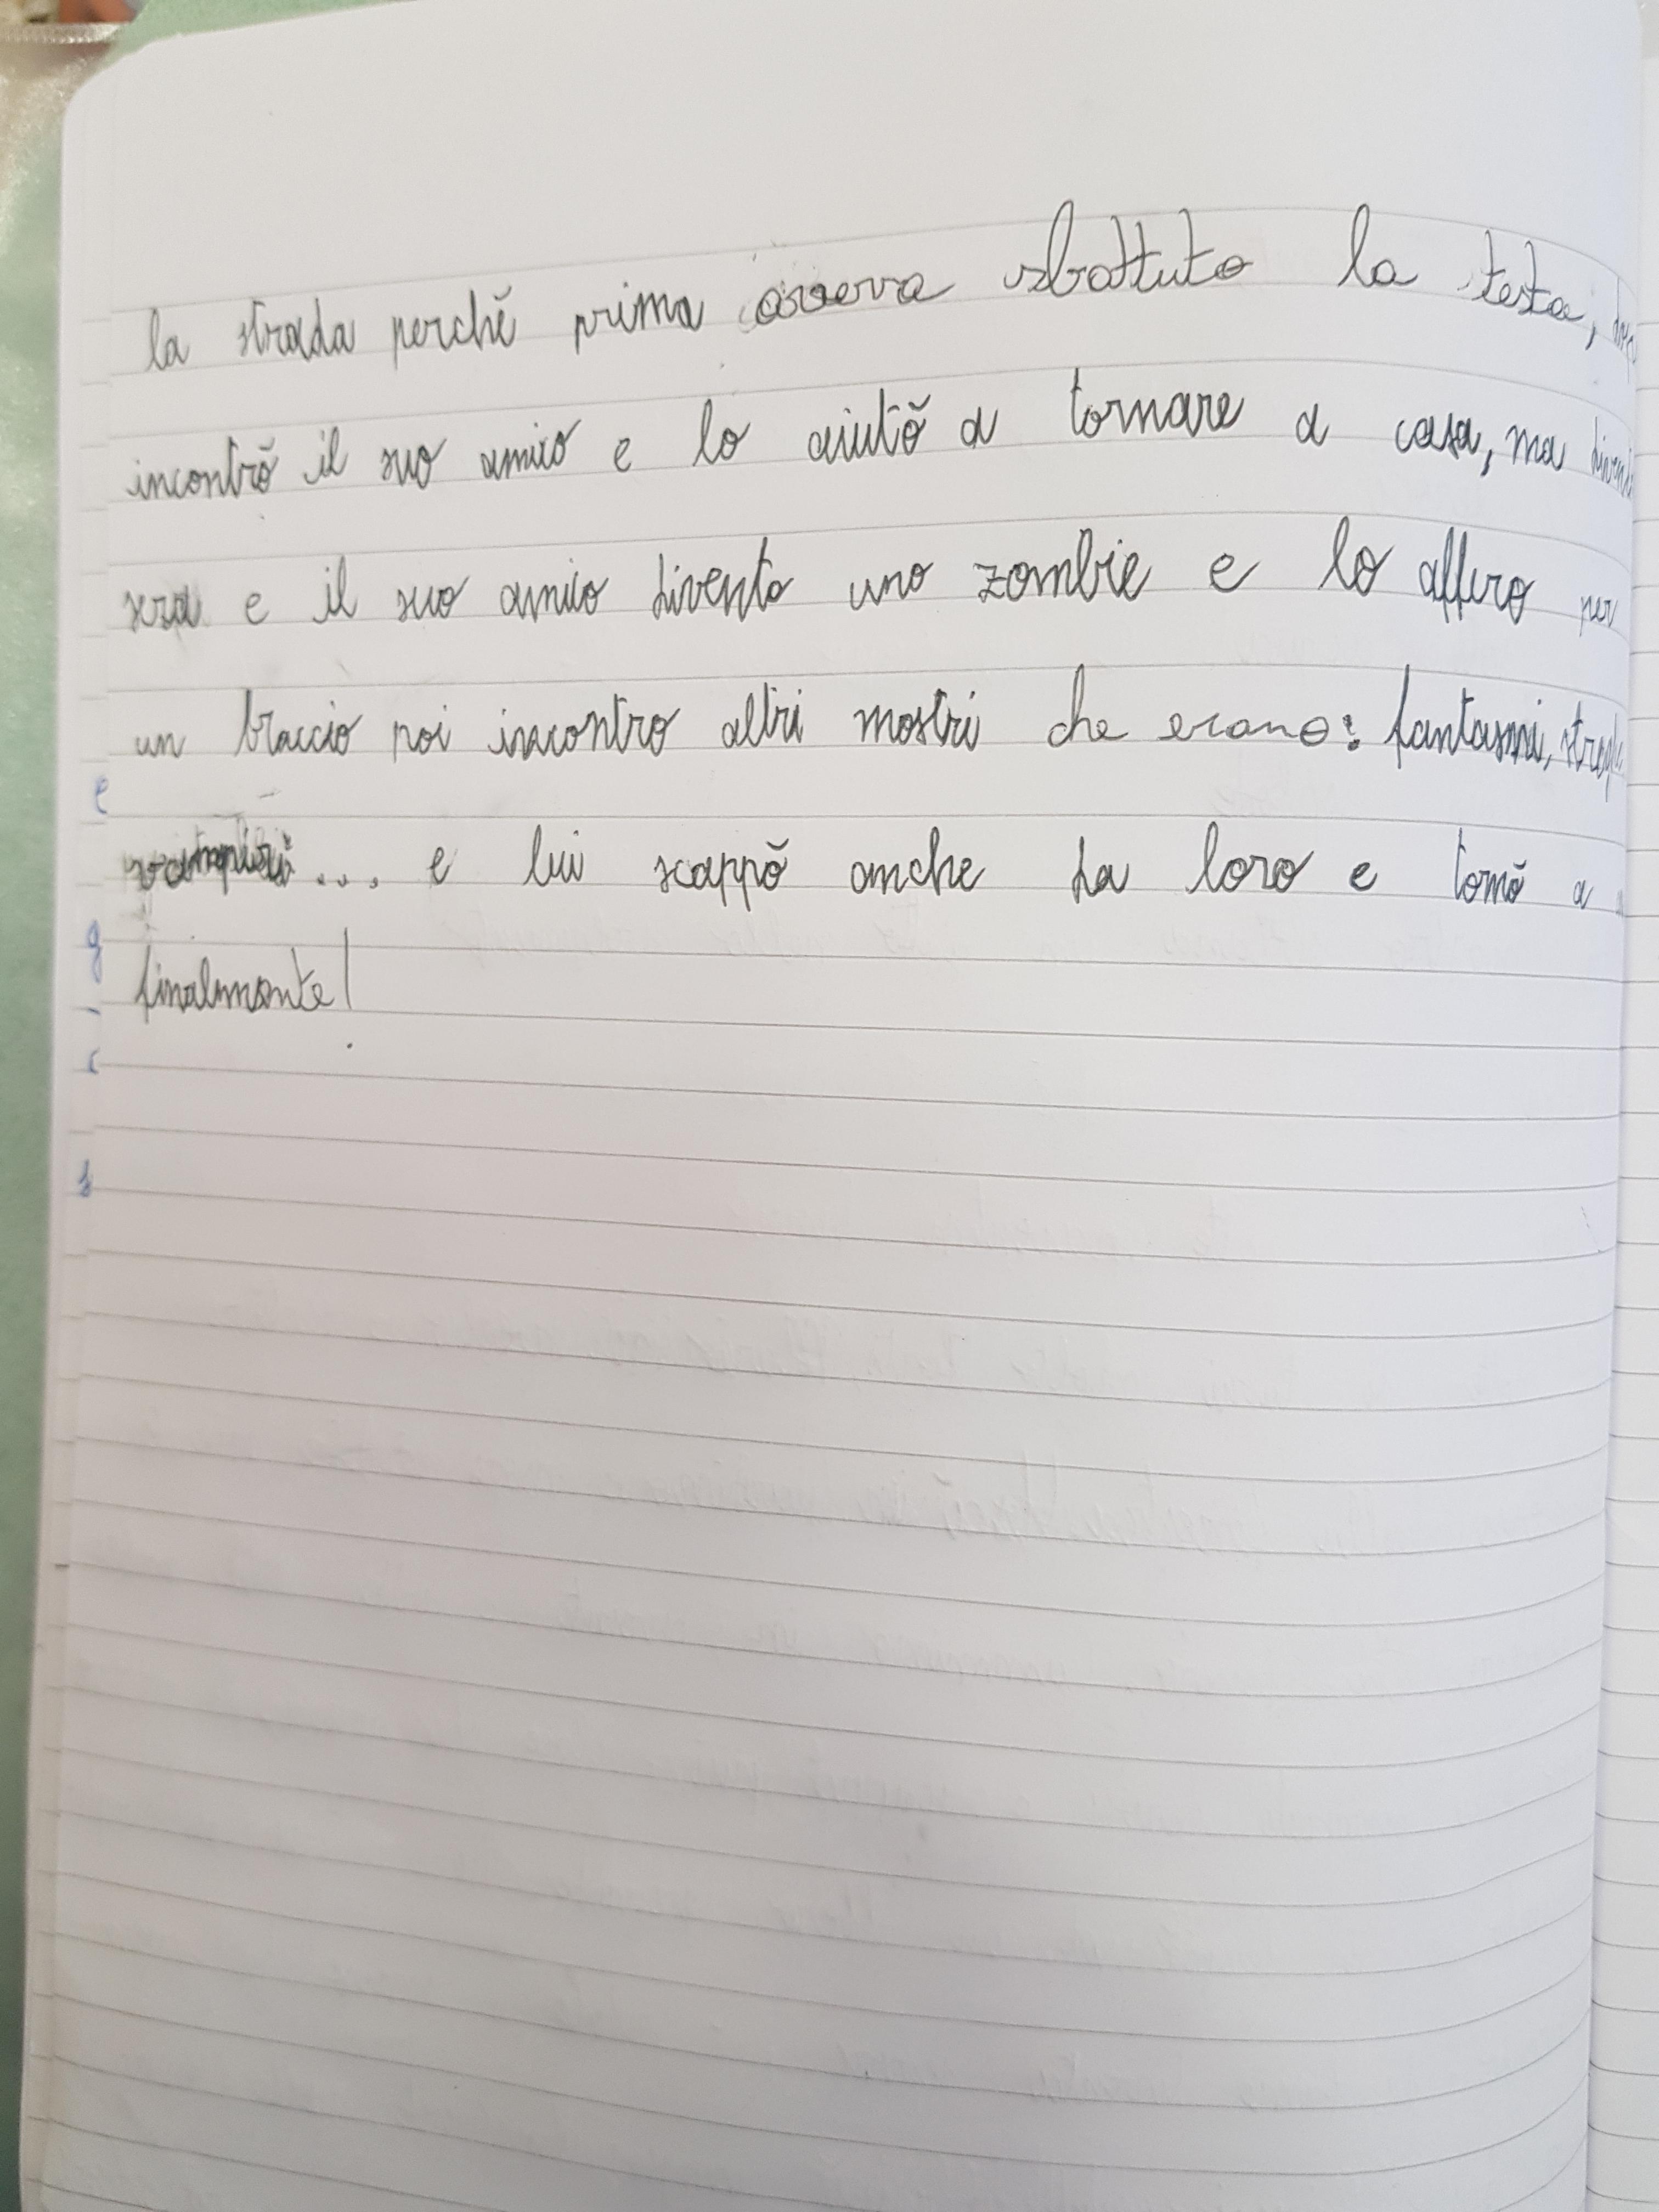 la strada perchĕ prima aveva sbattuto la testa,
incontrŏ il suo amico e lo aiutŏ a tornare a casa, ma
sera e il suo amico divento uno zombie e lo affero per
un braccio poi incontro altri mostri che erano: fantasmi,
vampiri... e lui scappŏ anche da loro e tornŏ a
finalmente!